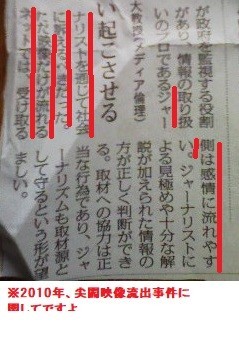 が政府を監視する役割
があり、情報の取り扱
いのプロであるジャー
い起こさせる
大教授(メディア倫理)
ナリストを通じて社会
に訴えるべきだった。
ただ映像だけが流れる
ネットでは、受け取る
側は感情に流れやす
い。ジャーナリストに
よる見極めや十分な解
説が加えられた情報の
方が正しく判断ができ
る。取材への協力は正
当な行為であり、ジャ
ーナリズムも取材源と
して守るという形が望
ましい。
※2010年、尖閣映像流出事件に
関してですよ